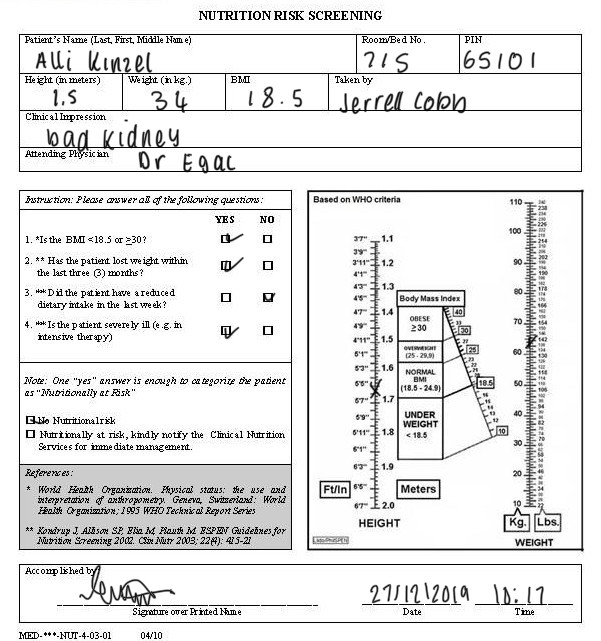 NUTRITION RISK SCREENING
Patient's Name (Last, First, Middle Name) Room/Bed No. PIN
Alli Kinzel 715 65101
Height (in meters) Weight (in kg.) BMI Taken by
1.5 34 18.5 Jerrell Cobb
Clinical Impression
bad kidney
Attending Physician
Dr Egal
Instruction: Please answer all of the following questions:
YES NO
1. *Is the BMI <18.5 or ≥30?
2. ** Has the patient lost weight within
the last three (3) months?
3. **Did the patient have a reduced
dietary intake in the last week?
4. **Is the patient severely ill (e.g. in
intensive therapy)
Note: One "yes" answer is enough to categorize the patient
as "Nutritionally at Risk"
No Nutritional risk
Nutritionally at risk, kindly notify the Clinical Nutrition
Services for immediate management.
References:
* World Health Organization. Physical status: the use and
interpretation of anthropometry. Geneva, Switzerland: World
Health Organization; 1995 WHO Technical Report Series
** Kondrup J, Allison SP, Elia M, Plauth M. ESPEN Guidelines for
Nutrition Screening 2002. Clin Nutr 2003; 22(4): 415-21
Based on WHO criteria
3'7" 1.1
3'9"
3'11" 1.2
4'1"
4'3" 1.3
4'5"
4'7" 1.4
4'9"
4'11" 1.5
5'1"
5'3" 1.6
5'5"
5'7" 1.7
5'9"
5'11" 1.8
6'1"
6'3" 1.9
6'5"
6'7" 2.0
Ft/In Meters
HEIGHT
Body Mass Index
OBESE
≥30
OVERWEIGHT
(25 - 29,9)
NORMAL
BMI
(18.5 - 24.9)
UNDER
WEIGHT
< 18.5
40
30
25
18.5
10
110
100
90
80
70
60
50
40
30
20
10
Kg. Lbs.
WEIGHT
Accomplished by
Signature over Printed Name
27/12/2019 10:17
Date Time
MED-***-NUT-4-03-01 04/10